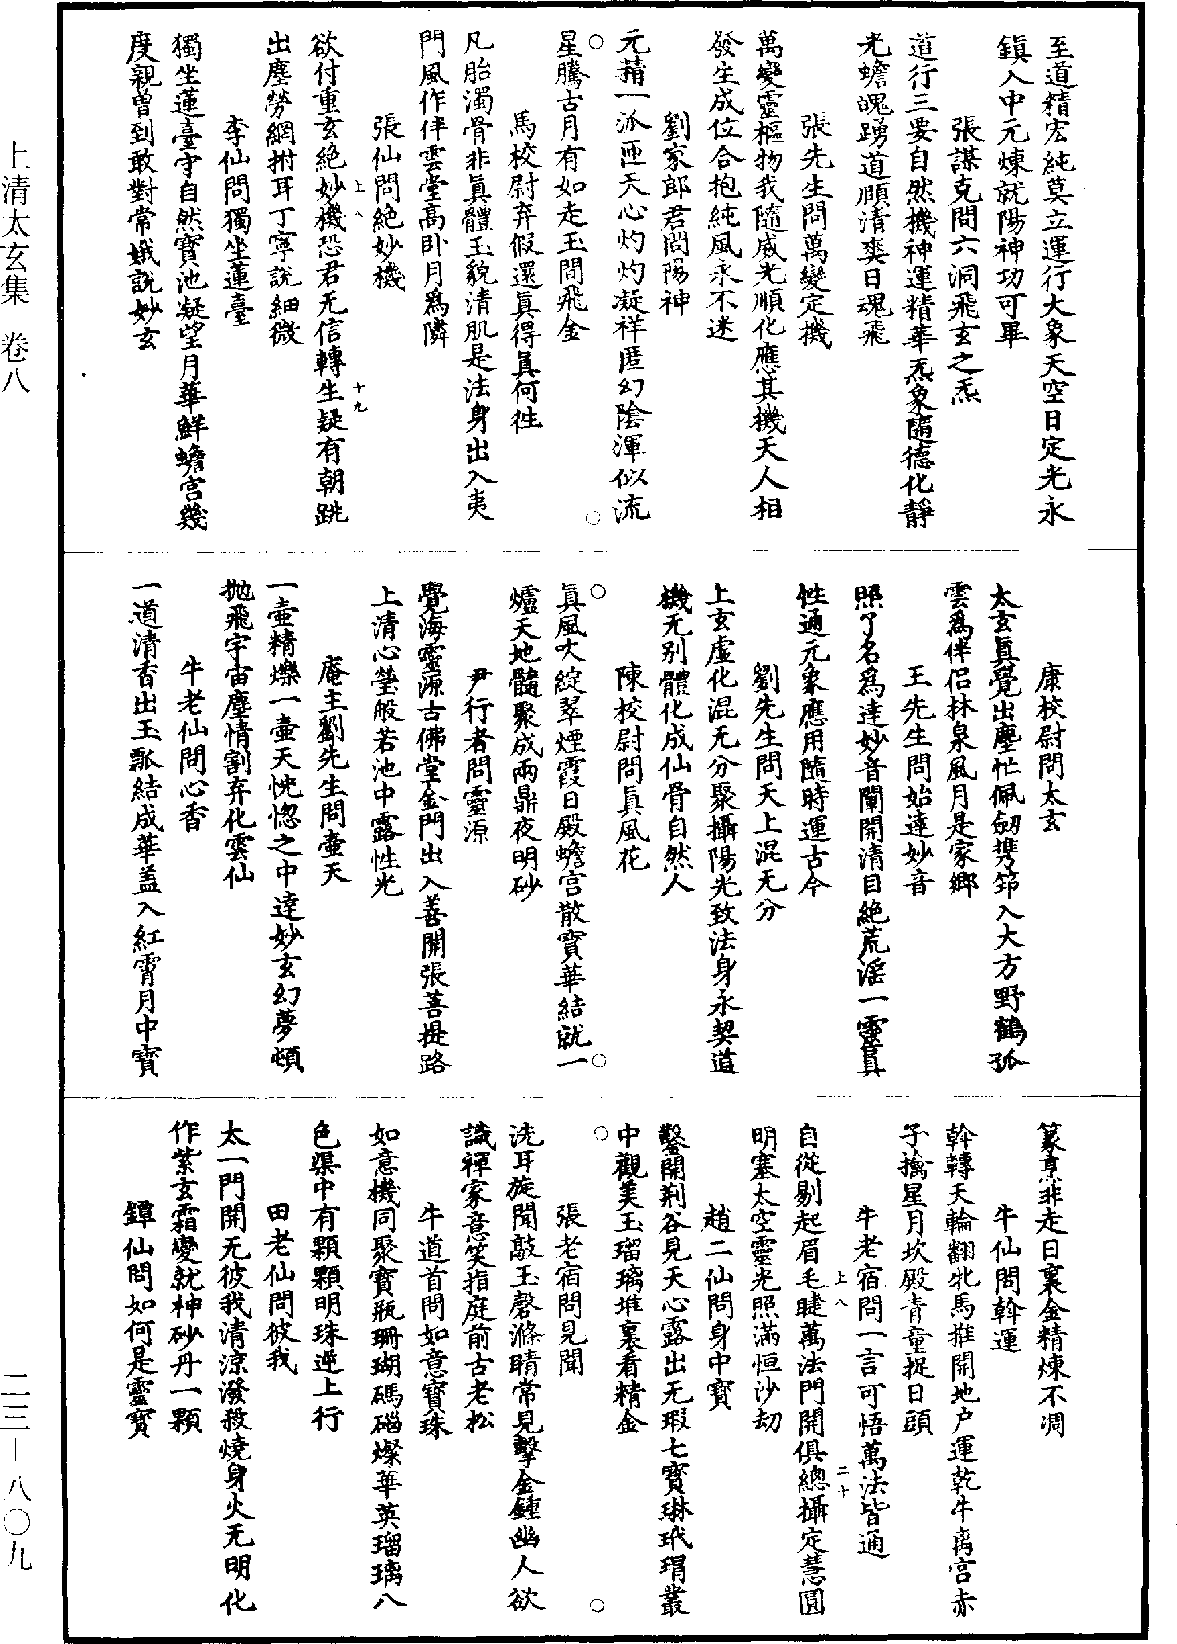 上清太玄集 卷八
至道精宏純莫立運行大象天空日定光永
鎮入中元煉就陽神功可畢
張謀克問六洞飛玄之炁
道行三要自然機神運精華炁象隨德化靜
光蟾魄踴道順清奕日魂飛
張先生問萬變定機
萬變靈樞物我隨威光順化應其機天人相
發生成位合抱純風永不迷
劉家郎君問陽神
元精一派迊天心灼灼凝祥匿幻陰渾似流
星騰古月有如走玉間飛金
馬校尉弃假還真得真何徃
凡胎濁骨非真體玉貌清肌是法身出入夷
門風作伴雲堂高卧月為隣
張仙問絶妙機
上八 十九
欲付重玄絶妙機恐君无信轉生疑有朝跳
出塵勞網拊耳丁寧說細微
李仙問獨坐蓮臺
獨坐蓮臺守自然寶池凝望月華鮮蟾宮幾
度親曾到敢對常娥說妙玄
康校尉問太玄
太玄真覺出塵忙佩劒携筇入大方野鶴孤
雲為伴侣林泉風月是家鄉
王先生問始達妙音
照了名為達妙音闡開清目絶荒淫一靈真
性通元象應用隨時運古今
劉先生問天上混无分
上玄虛化混无分聚攝陽光致法身永契道
機无别體化成仙骨自然人
陳校尉問真風花
真風大綻翠煙霞日殿蟾宮散寶華結就一
爐天地髓聚成兩鼎夜明砂
尹行者問靈源
覺海靈源古佛堂金門出入善開張菩提路
上清心瑩般若池中露性光
庵主劉先生問壷天
一壷精爍一壷天恍惚之中達妙玄幻夢頓
抛飛宇宙塵情割弃化雲仙
牛老仙問心香
一道清香出玉瓢結成華盖入紅霄月中寶
篆烹非走日裏金精煉不凋
牛仙問幹運
幹轉天輪翻牝馬推開地户運乾牛离宮赤
子擒星月坎殿青童捉日頭
牛老宿問一言可悟萬法皆通
上八 二十
自從剔起眉毛睫萬法門開俱總攝定慧圓
明塞太空靈光照滿恒沙劫
趙二仙問身中寶
鑿開荆谷見天心露出无瑕七寶琳玳瑁叢
中觀美玉瑠璃堆裏看精金
張老宿問見聞
洗耳旋聞敲玉磬滌睛常見擊金鍾幽人欲
識禪家意笑指庭前古老松
牛道首問如意寶珠
如意機同聚寶瓶珊瑚碼碯燦華英瑠璃八
色渠中有顆顆明珠逆上行
田老仙問彼我
太一門開无彼我清涼潑㪚燒身火无明化
作紫玄霜變就神砂丹一顆
鐔仙問如何是靈寶
二三—八〇九